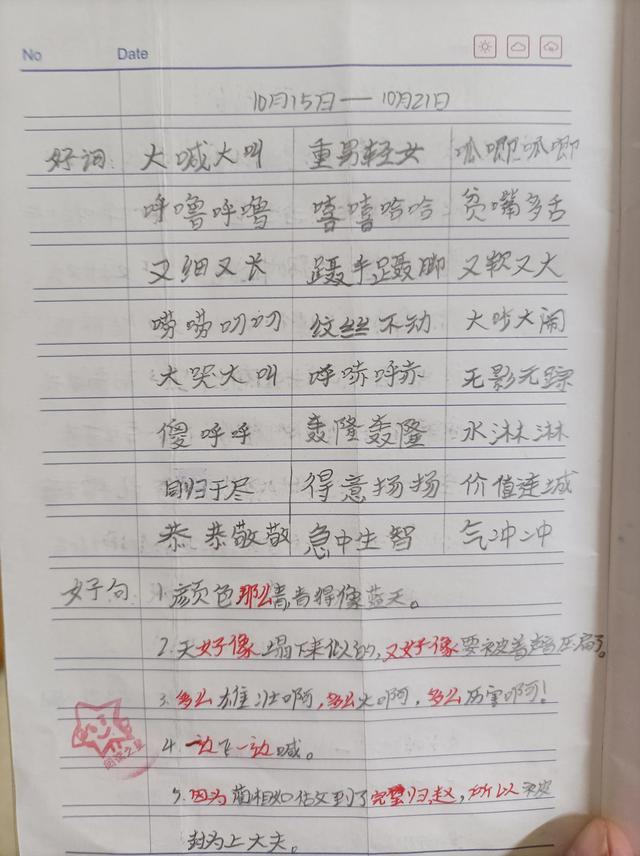 No Date
10月15日—10月21日
好词 大喊大叫 重男轻女 呱唧呱唧
呼噜呼噜 嘻嘻哈哈 贫嘴多舌
又细又长 蹑手蹑脚 又软又大
唠唠叨叨 纹丝不动 大吵大闹
大哭大叫 呼哧呼哧 无影无踪
傻呼呼 轰隆轰隆 水淋淋
同归于尽 得意扬扬 价值连城
恭恭敬敬 急中生智 气冲冲
好句 1.颜色那么青青得像蓝天。
2.天好像塌下来似的,又好像要被声压扁了。
3.多么雄壮啊,多么大啊,多么厉害啊!
4.一边飞一边喊。
5.因为蔺相如做到了完璧归赵,所以被
封为上大夫。
阅读之星